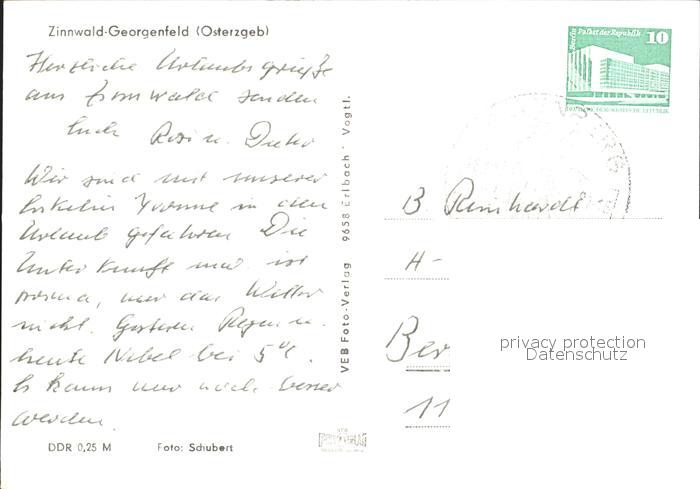 Zinnwald-Georgenfeld (Osterzgeb)
Herzliche Urlaubsgrüße
aus Zinnwald senden
Euch Rosi u. Dieter
Wir sind mit unserer
Enkelin Yvonne in den
Urlaub gefahren. Die
Unterkunft ist
prima, nur das Wetter
nicht. Gestern Regen u.
heute Nebel bei 5°C.
Es kann nur noch besser
werden.
DDR 0,25 M
Foto: Schubert
VEB Foto-Verlag 9658 Erlbach · Vogtl.
Berlin Palast der Republik
10
B Reinhardt
H-
Ber
11
privacy protection
Datenschutz